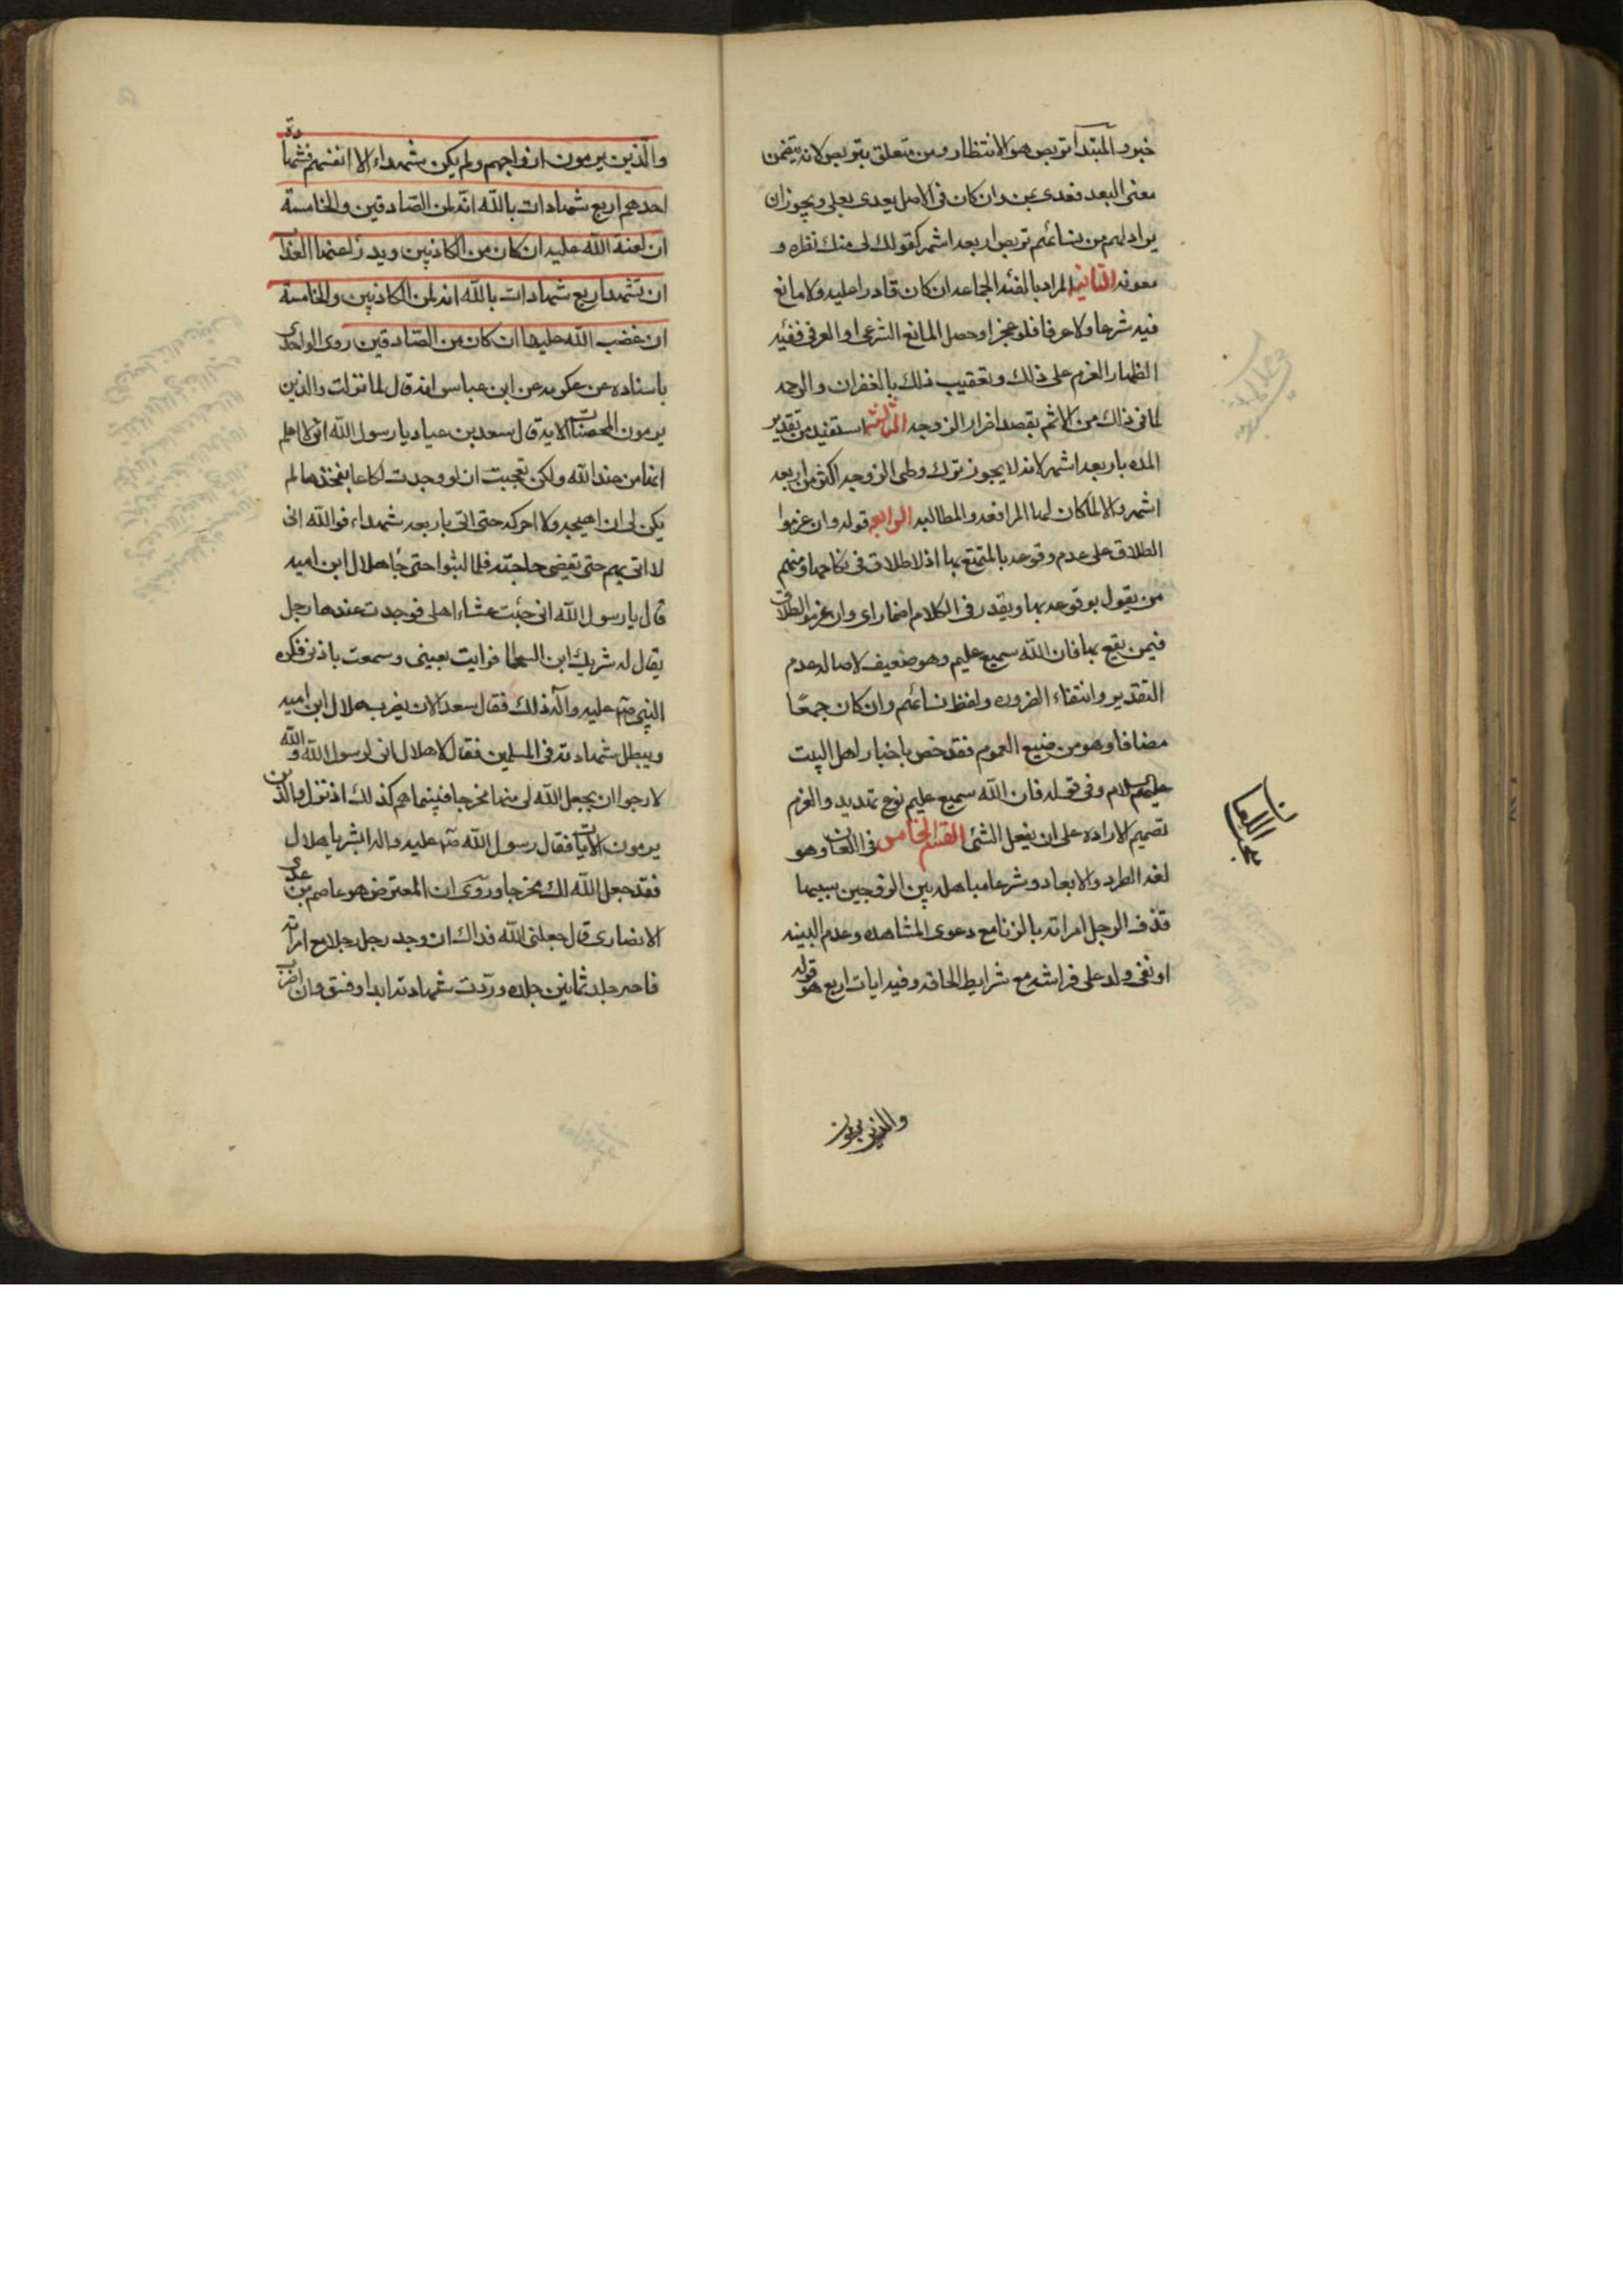 خبر والمبتدأ تربص هو الانتظار ومن متعلق بتربص لانه يتضمن
معنى البعد فعدى بمن وان كان فى الاصل يعدى بعلى ويجوز ان
يراد لهم من نسائهم تربص اربعة اشهر كقولك لى منك نصره و
معونه الثانيه المراد بالفئه الجماع ان كان قادرا عليه ولا مانع
فيه شرعا ولا عرفا فلو عجز او حصل المانع الشرعى او العرفى ففئته
اظهار العزم على ذلك وتعقيب ذلك بالغفران والرحمه
لما فى ذلك من الاثم بقصد اضرار الزوجه الثالثه استفيد من تقدير
المده باربعه اشهر لانه لا يجوز ترك وطى الزوجه اكثر من اربعه
اشهر والا لما كان لها المرافعه والمطالبه الرابعه قوله وان عزموا
الطلاق على عدم وقوعه بالمتمتع بها اذ لا طلاق فى نكاحها ومنهم
من يقول بوقوعه بها ويقدر فى الكلام اضمار اى وان عزموا الطلاق
فيمن يقع بها فان الله سميع عليم وهو ضعيف لاصاله عدم
التقدير وانتفاء الضروره ولفظ نسائهم وان كان جمعًا
مضافا وهو من صيغ العموم فقد خص باخبار اهل البيت
عليهم السلام وفى قوله فان الله سميع عليم نوع تهديد والعزم
تصميم الاراده على ان يفعل الشئ القسم الخامس فى اللعان وهو
لغه الطرد والابعاد وشرعا مباهله بين الزوجين سببها
قذف الرجل امراته بالزنا مع دعوى المشاهده وعدم البينه
او نفى ولد على فراشه مع شرايط الحاقه وفيه ايات اربع هو قوله
بحث اللعان
والذين يرمون
والذين يرمون ازواجهم ولم يكن شهداء الا انفسهم فشهادة
احدهم اربع شهادات بالله انه لمن الصادقين والخامسة
ان لعنة الله عليه ان كان من الكاذبين ويدرؤا عنها العذاب
ان تشهد اربع شهادات بالله انه لمن الكاذبين والخامسة
ان غضب الله عليها ان كان من الصادقين روى الواحدى
باسناده عن عكرمه عن ابن عباس انه قال لما نزلت والذين
يرمون المحصنات الايه قال سعد بن عباد يا رسول الله انى لا اعلم
انها من عند الله ولكن تعجبت ان لو وجدت لكاعا يفخذها لم
يكن لى ان اهيجه ولا احركه حتى اتى باربعه شهداء فوالله انى
لا اتى بهم حتى تقضى حاجته فلما لبثوا حتى جاء هلال ابن اميه
قال يا رسول الله انى جئت عشاء اهلى فوجدت عندها رجل
يقال له شريك ابن السحما فرايت بعينى وسمعت باذنى فكره
النبى ص عليه وآله ذلك فقال سعد الان يضرب هلال ابن اميه
ويبطل شهادته فى المسلمين فقال هلال انى لرسول الله والله
لارجوا ان يجعل الله لى منها مخرجا فبينما هم كذلك اذ نزل والذين
يرمون الايات فقال رسول الله ص عليه واله ابشر يا هلال
فقد جعل الله لك مخرجا وروى ان المعترض هو عاصم بن عدى
الانصارى قال جعلنى الله فداك ان وجد رجل رجلا مع امراته
فاخبر جلد ثمانين جلده وردت شهادته ابدا وفسق وان